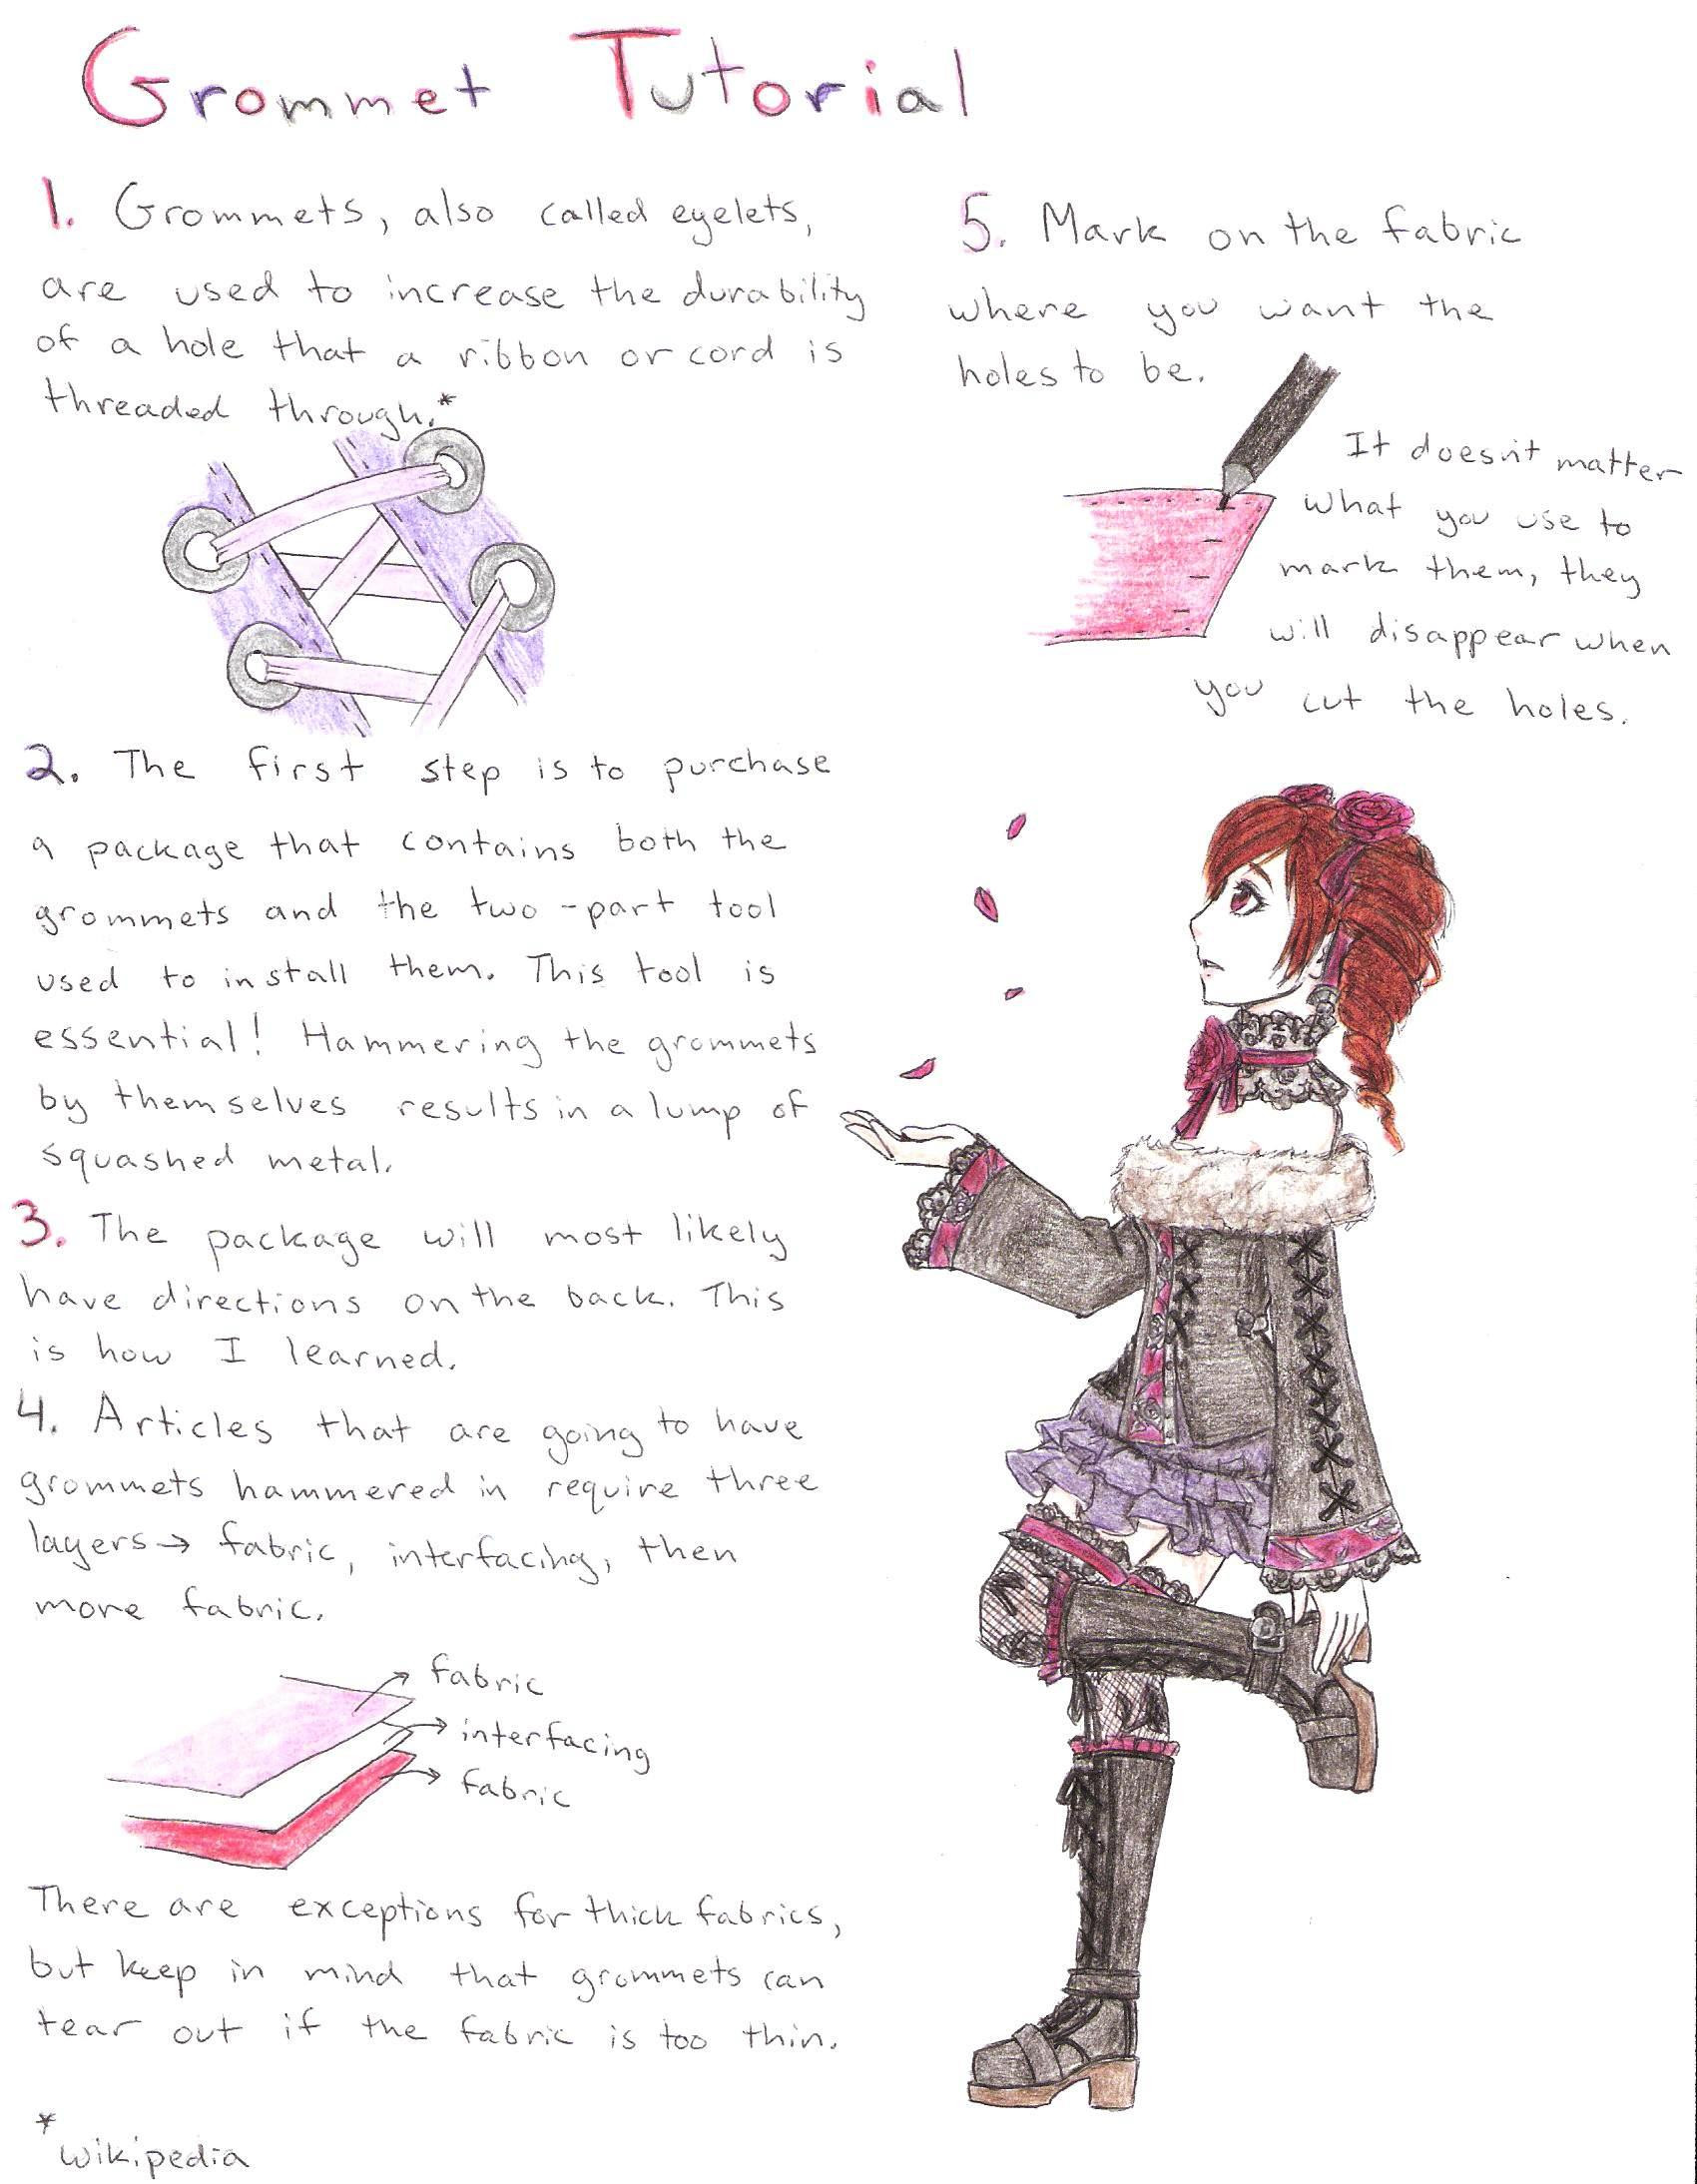 Grommet Tutorial
1. Grommets, also called eyelets,
are used to increase the durability
of a hole that a ribbon or cord is
threaded through.*
2. The first step is to purchase
a package that contains both the
grommets and the two-part tool
used to install them. This tool is
essential! Hammering the grommets
by themselves results in a lump of
squashed metal.
3. The package will most likely
have directions on the back. This
is how I learned.
4. Articles that are going to have
grommets hammered in require three
layers → fabric, interfacing, then
more fabric.
fabric
interfacing
fabric
There are exceptions for thick fabrics,
but keep in mind that grommets can
tear out if the fabric is too thin.
*
Wikipedia
5. Mark on the fabric
where you want the
holes to be.
It doesn't matter
what you use to
mark them, they
will disappear when
you cut the holes.